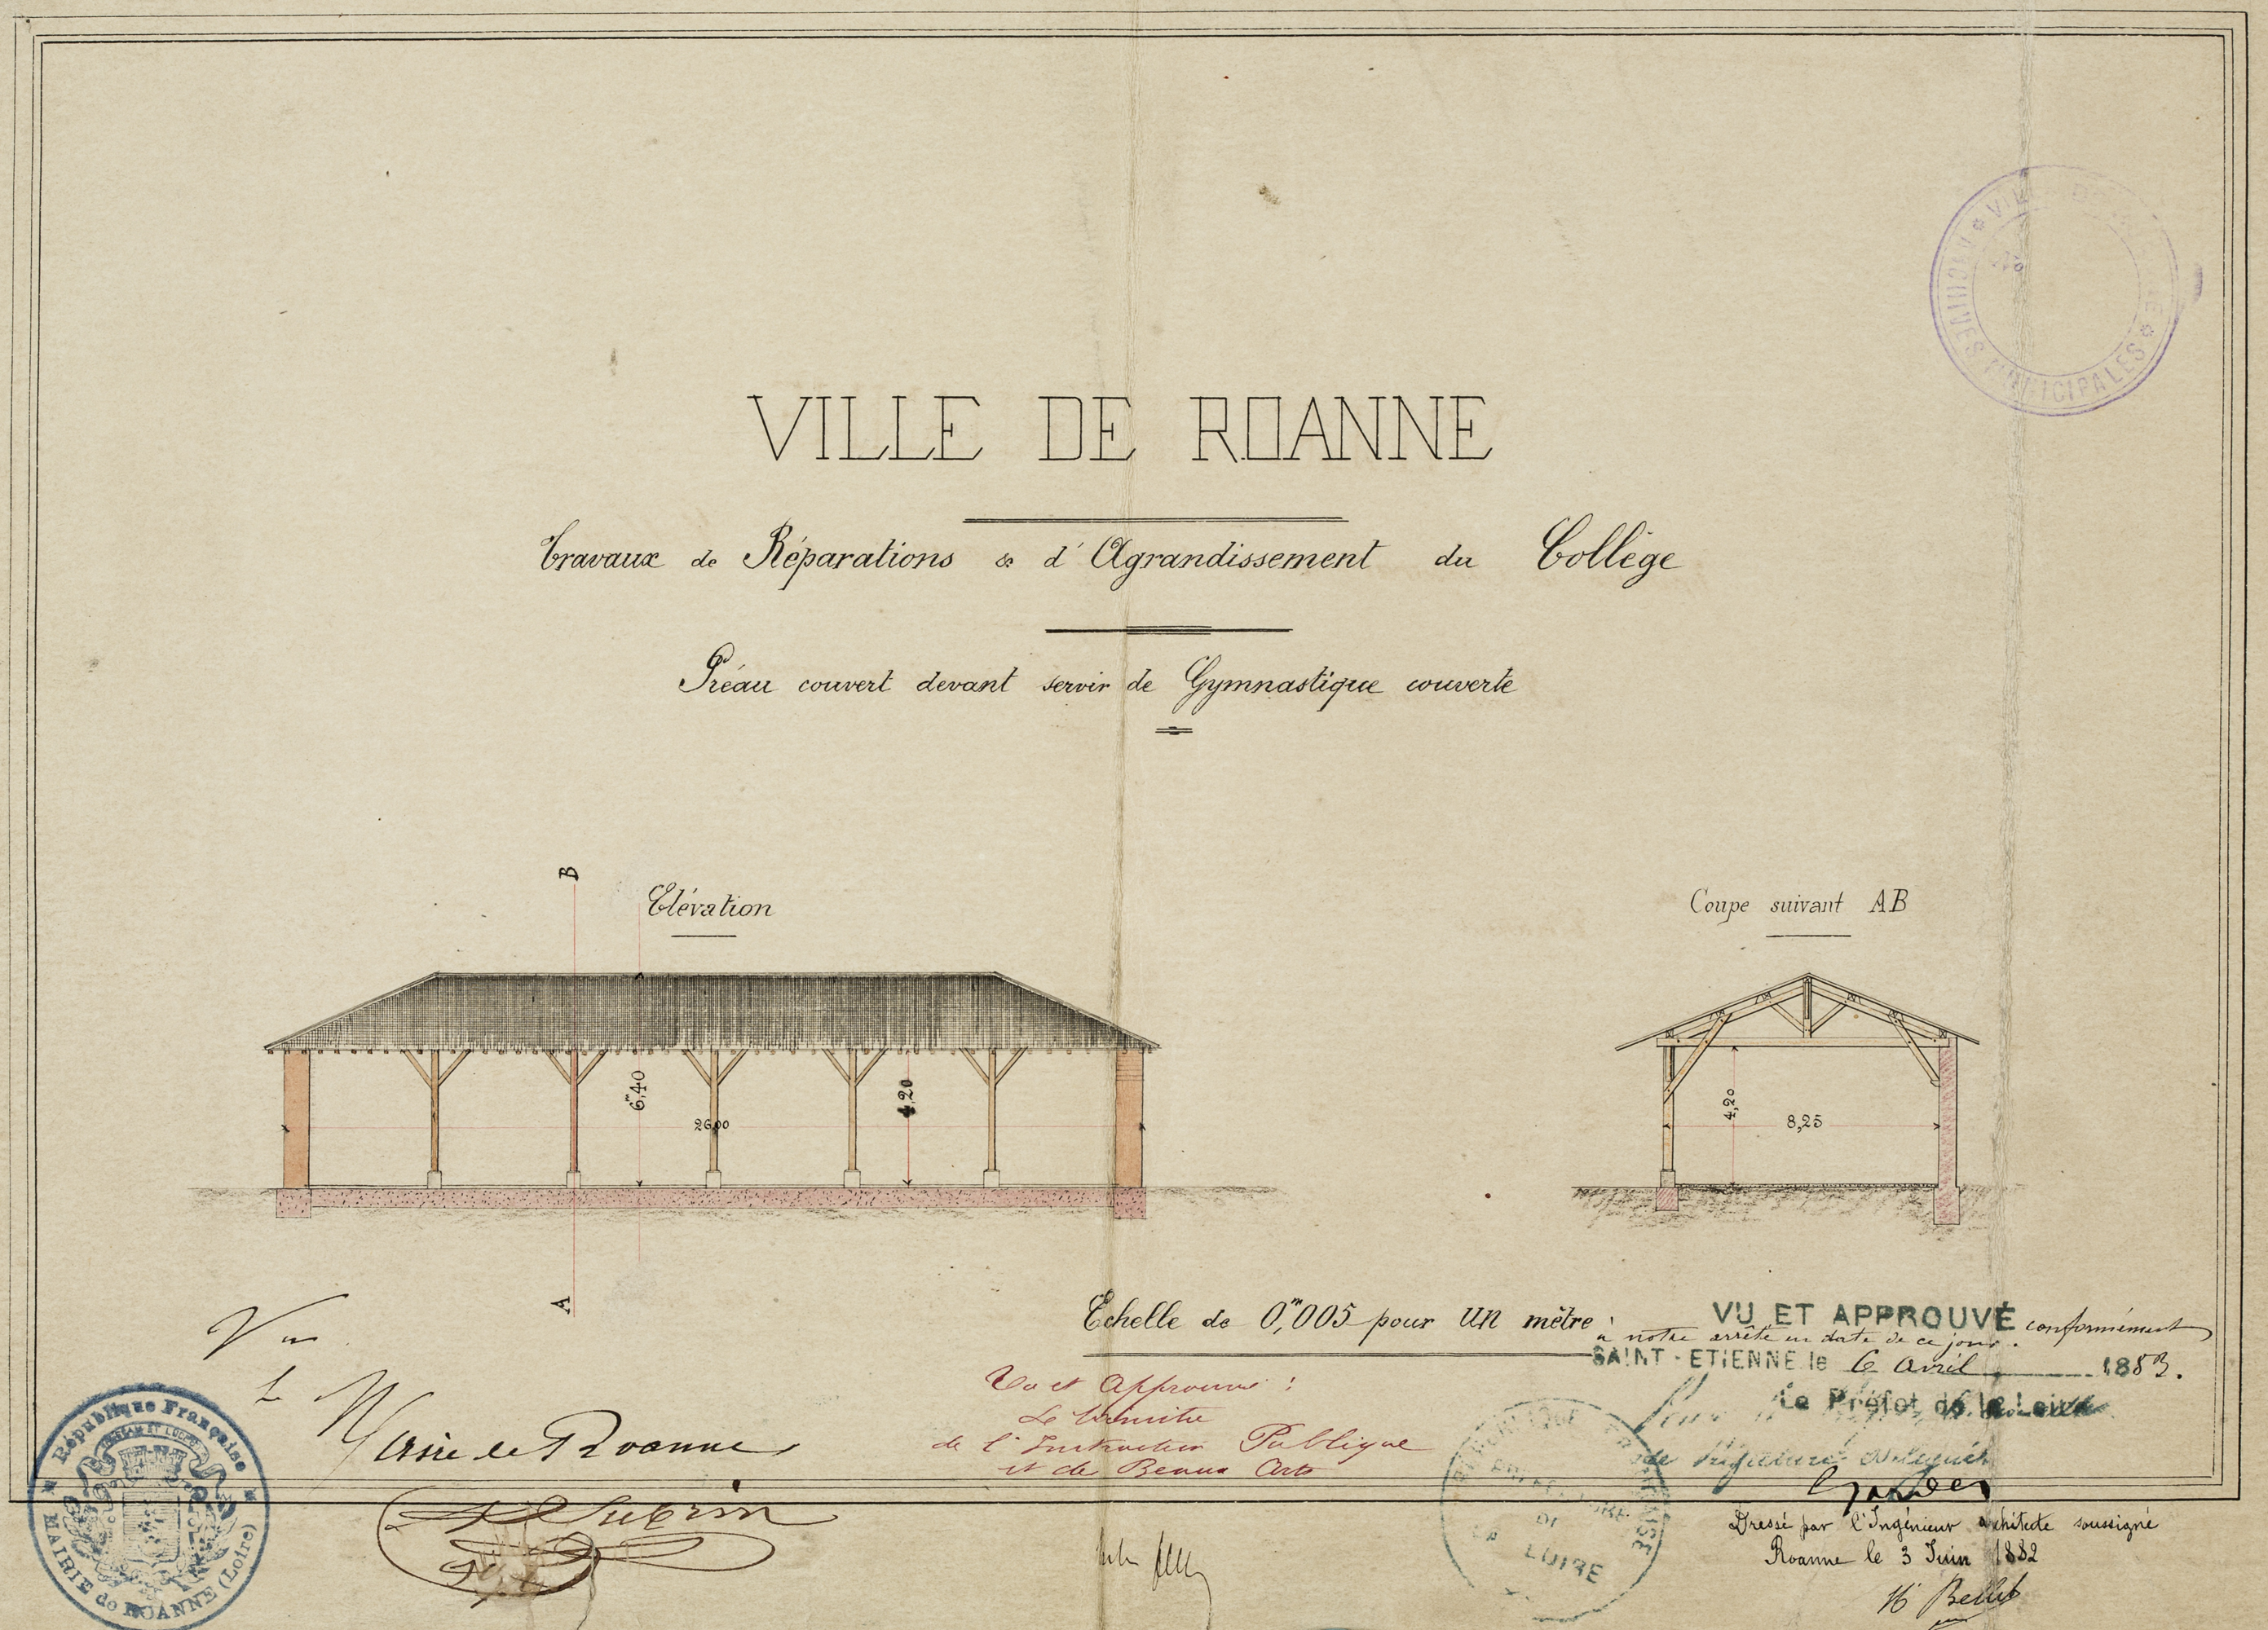 VILLE DE ROANNE
Travaux de Réparations & d'Agrandissement du Collège
Préau couvert devant servir de Gymnastique couverte
ARCHIVES MUNICIPALES
B
Elévation
Coupe suivant AB
6m,40
26,00
4,20
4,20
8,25
A
Echelle de 0m,005 pour un mètre.
VU ET APPROUVÉ conformément
à notre arrêté en date de ce jour.
SAINT-ETIENNE le 6 avril 1883.
Le Préfet de la Loire
Vu
Le Maire de Roanne
Vu et Approuvé :
Le Ministre
de l'Instruction Publique
et des Beaux Arts
République Française
MAIRIE de ROANNE (Loire)
LOIRE
Dressé par l'Ingénieur architecte soussigné
Roanne le 3 Juin 1882